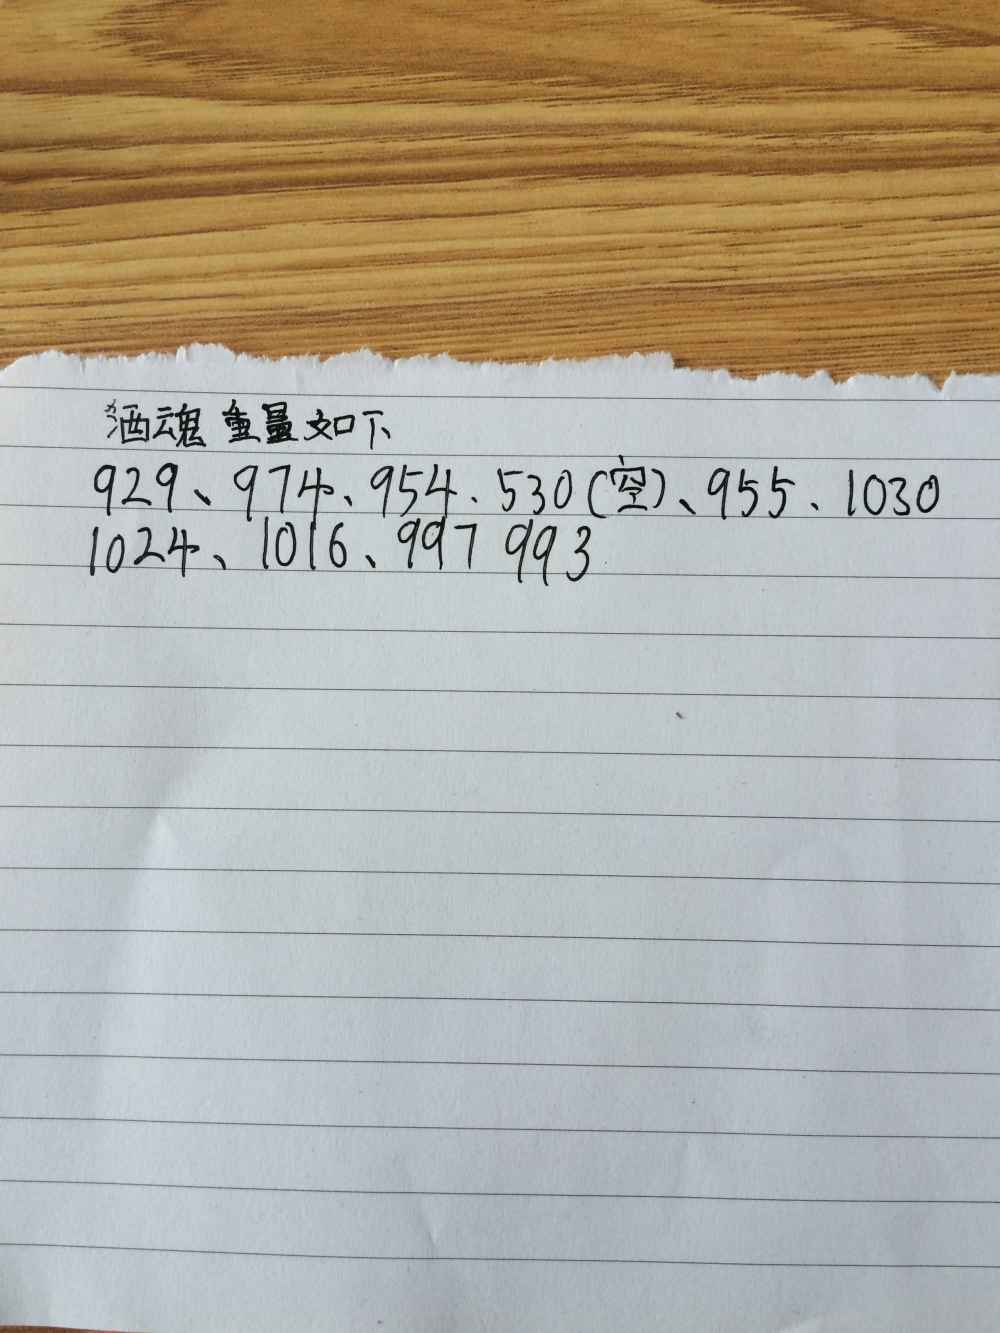 酒魂重量如下
929、974、954、530(空)、955、1030
1024、1016、997 993